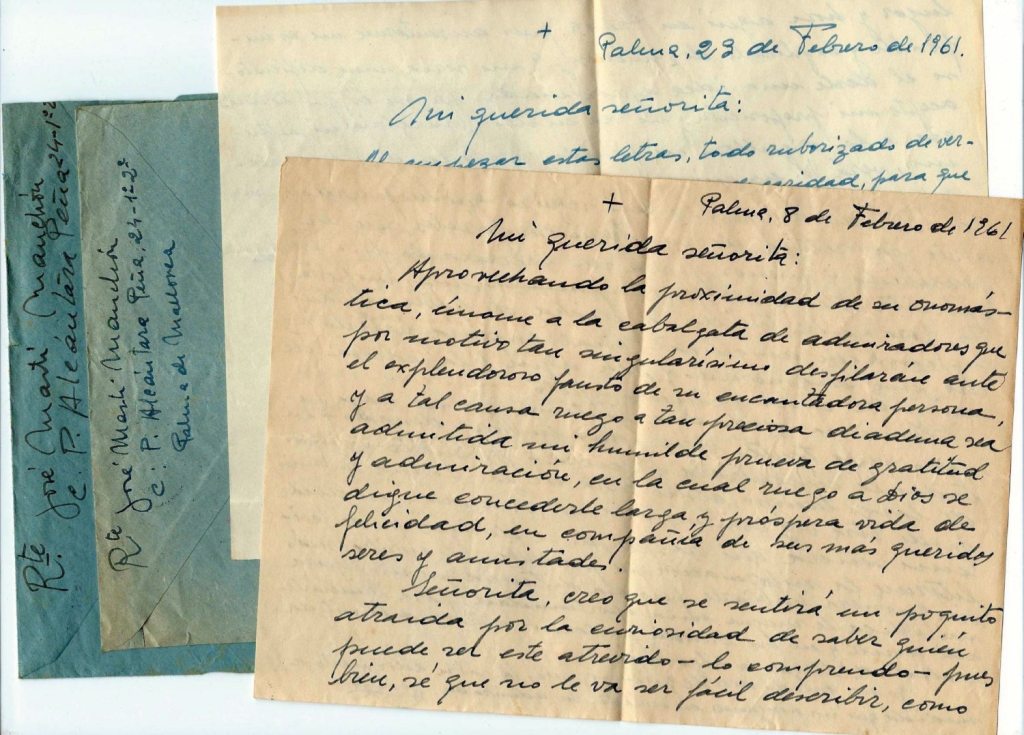 Rte José Martí Manchón
C. P. Alcántara Peña 24-1º2ª
Rte José Martí Manchón
C: P. Alcántara Peña, 24-1º-2ª
Palma de Mallorca
+
Palma, 23 de Febrero de 1961.
Mi querida señorita:
Al empezar estas letras, todo ruborizado de ver-
caridad, para que
+
Palma, 8 de Febrero de 1961
Mi querida señorita:
Aprovechando la proximidad de su onomás-
tica, únome a la cabalgata de admiradores que
por motivo tan singularísimo desfilarán ante
el explendoroso fausto de su encantadora persona,
y a tal causa ruego a tan preciosa diadema sea
admitida mi humilde prueba de gratitud
y admiración, en la cual ruego a Dios se
digne concederle larga y próspera vida de
felicidad, en compañía de sus más queridos
seres y amistades.
Señorita, creo que se sentirá un poquito
atraida por la curiosidad de saber quién
puede ser este atrevido - lo comprendo - pues
bien, sé que no le va ser fácil describir, como